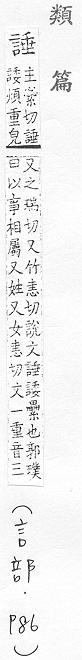 類篇
諈
主切諈
諉煩重皃
又之瑞切又竹恚切說文諈諉纍也郭璞
曰以事相屬又姓又女恚切文一重音三
(言部.P86)